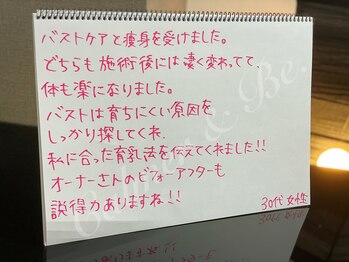 バストケアと痩身を受けました。
どちらも施術後には凄く変わってて、
体も楽になりました。
バストは育ちにくい原因を
しっかり探してくれ、
私に合った育乳法を伝えてくれました!!
オーナーさんのビフォーアフターも
説得力ありますね!!
30代 女性